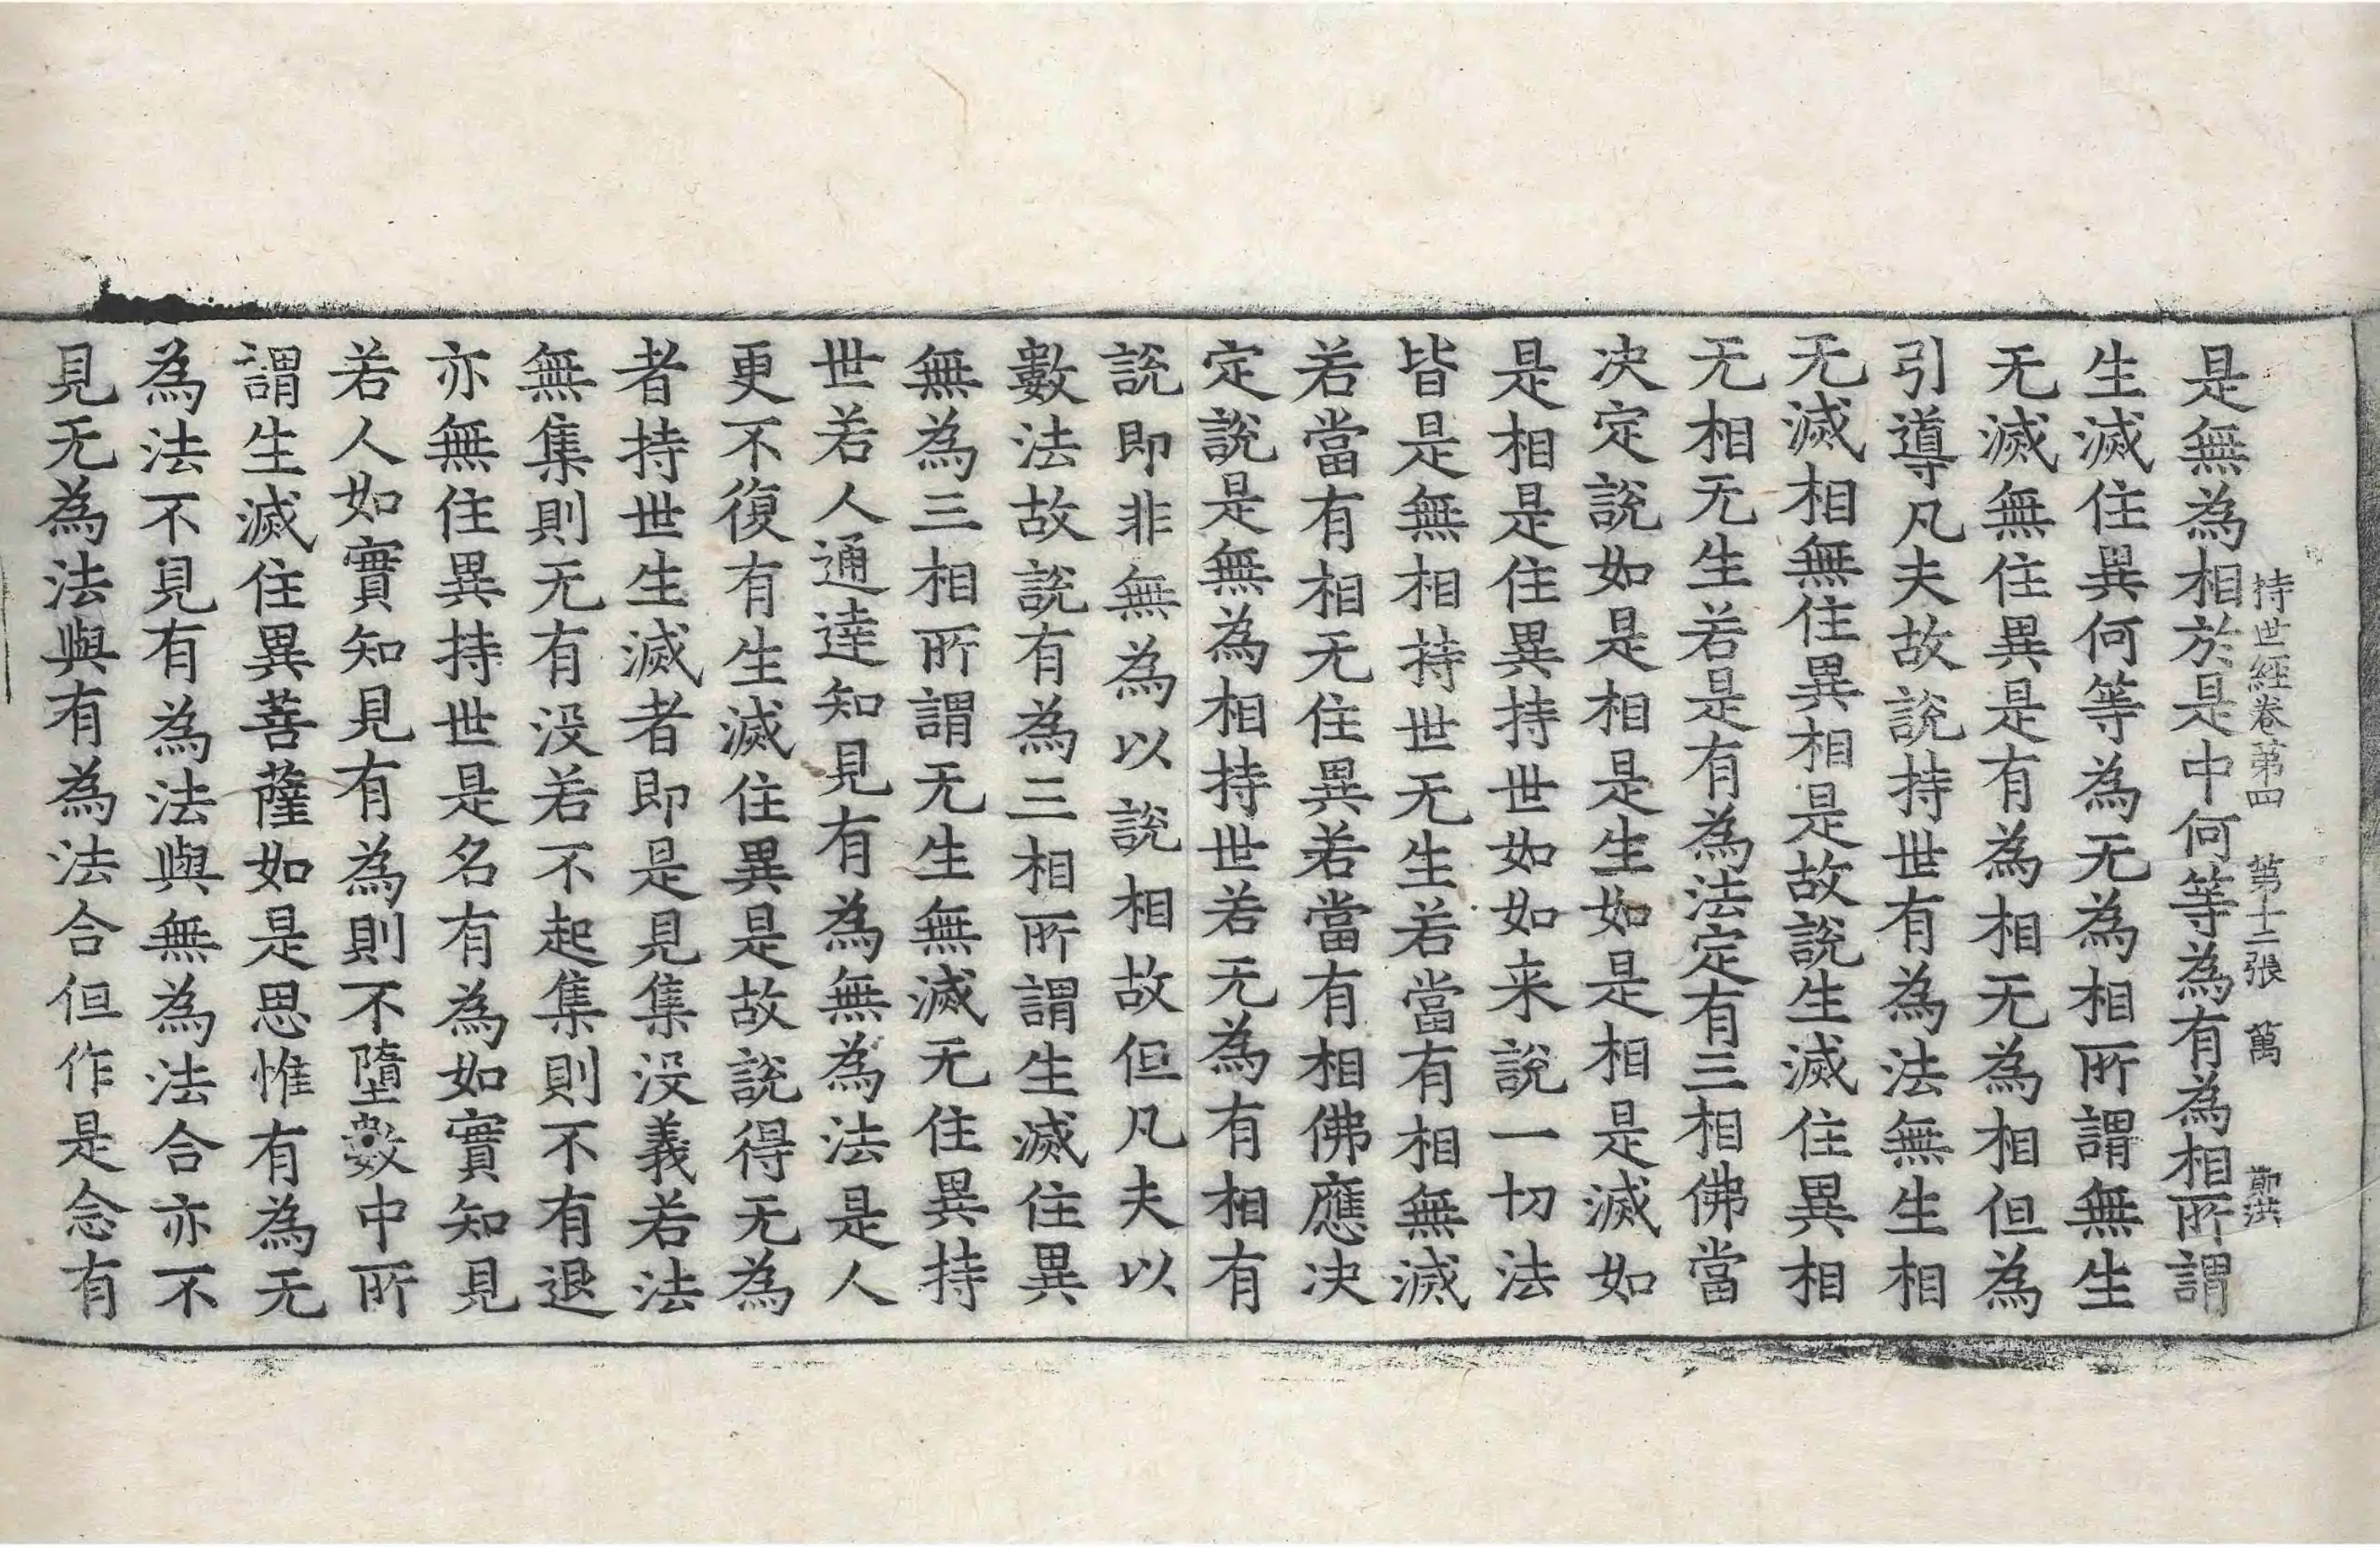 持世經卷第四 第十二張 萬
是無為相於是中何等為有為相所謂
生滅住異何等為无為相所謂無生
无滅無住異是有為相无為相但為
引導凡夫故說持世有為法無生相
无滅相無住異相是故說生滅住異相
无相无生若是有為法定有三相佛當
决定說如是相是生如是相是滅如
是相是住異持世如如来說一切法
皆是無相持世无生若當有相無滅
若當有相无住異若當有相佛應决
定說是無為相持世若无為有相有
說即非無為以說相故但凡夫以
數法故說有為三相所謂生滅住異
無為三相所謂无生無滅无住異持
世若人通達知見有為無為法是人
更不復有生滅住異是故說得无為
者持世生滅者即是見集没義若法
無集則无有没若不起集則不有退
亦無住異持世是名有為如實知見
若人如實知見有為則不墮數中所
謂生滅住異菩薩如是思惟有為无
為法不見有為法與無為法合亦不
見无為法與有為法合但作是念有